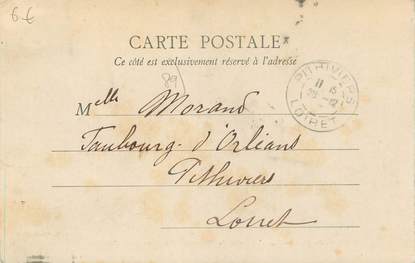 6€
CARTE POSTALE
Ce côté est exclusivement réservé à l'adresse
Melle Morand
Faubourg d'Orléans
Pithiviers
Loiret
PITHIVIERS
LOIRET